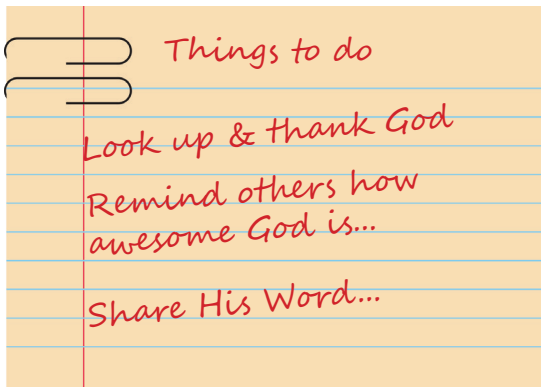 Things to do
Look up & thank God
Remind others how
awesome God is...
Share His Word...